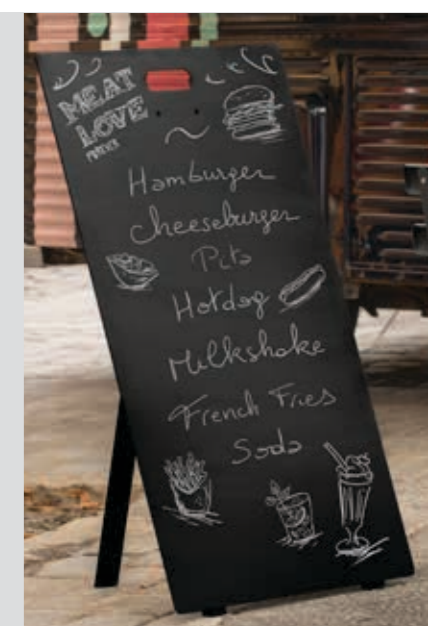 MEAT
LOVE
Hamburger
cheeseburger
Pita
Hotdog
Milkshake
French Fries
Soda